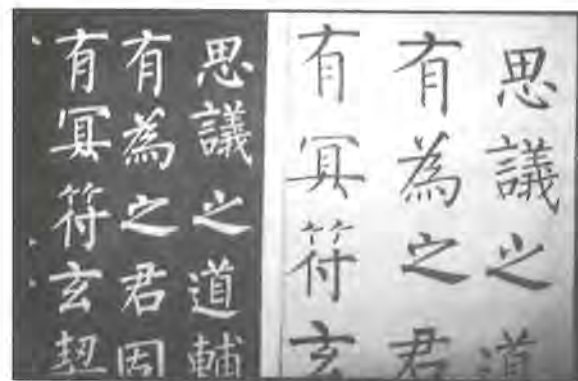 思議之道輔
有為之君因
有冥符玄契
思議之道
有為之君
有冥符玄